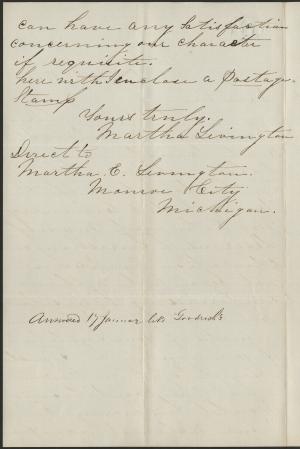 can have any Satisfaction
concerning our character
if requisite.
here with I enclose a Postage
Stamp
Yours truly.
Martha Livington
Direct to
Martha. E. Livington.
Monroe City
Michigan.
Answered 17